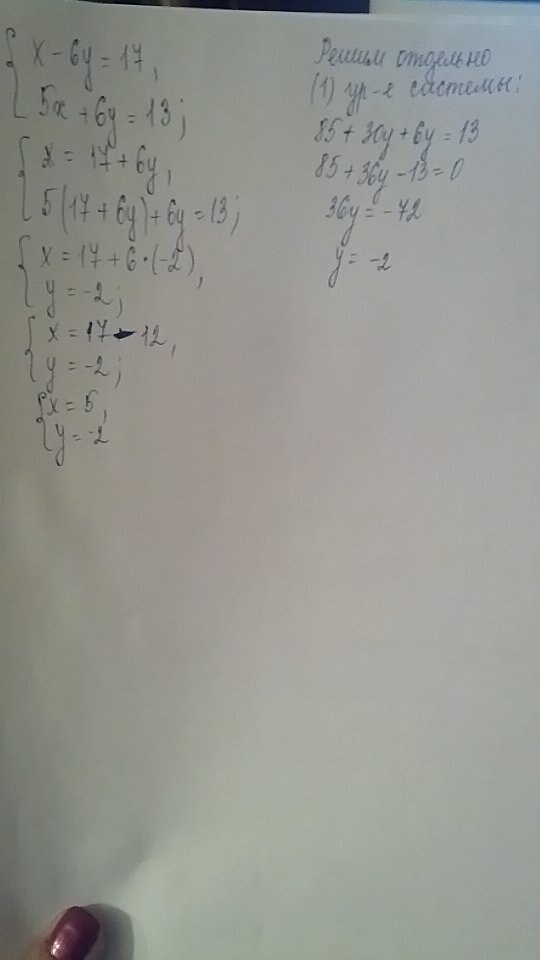 x - 6y = 17,
5x + 6y = 13;
x = 17 + 6y,
5(17 + 6y) + 6y = 13;
x = 17 + 6·(-2),
y = -2;
x = 17 - 12,
y = -2;
x = 5,
y = -2
Решим отдельно
(1) ур-е системы:
85 + 30y + 6y = 13
85 + 36y - 13 = 0
36y = -72
y = -2